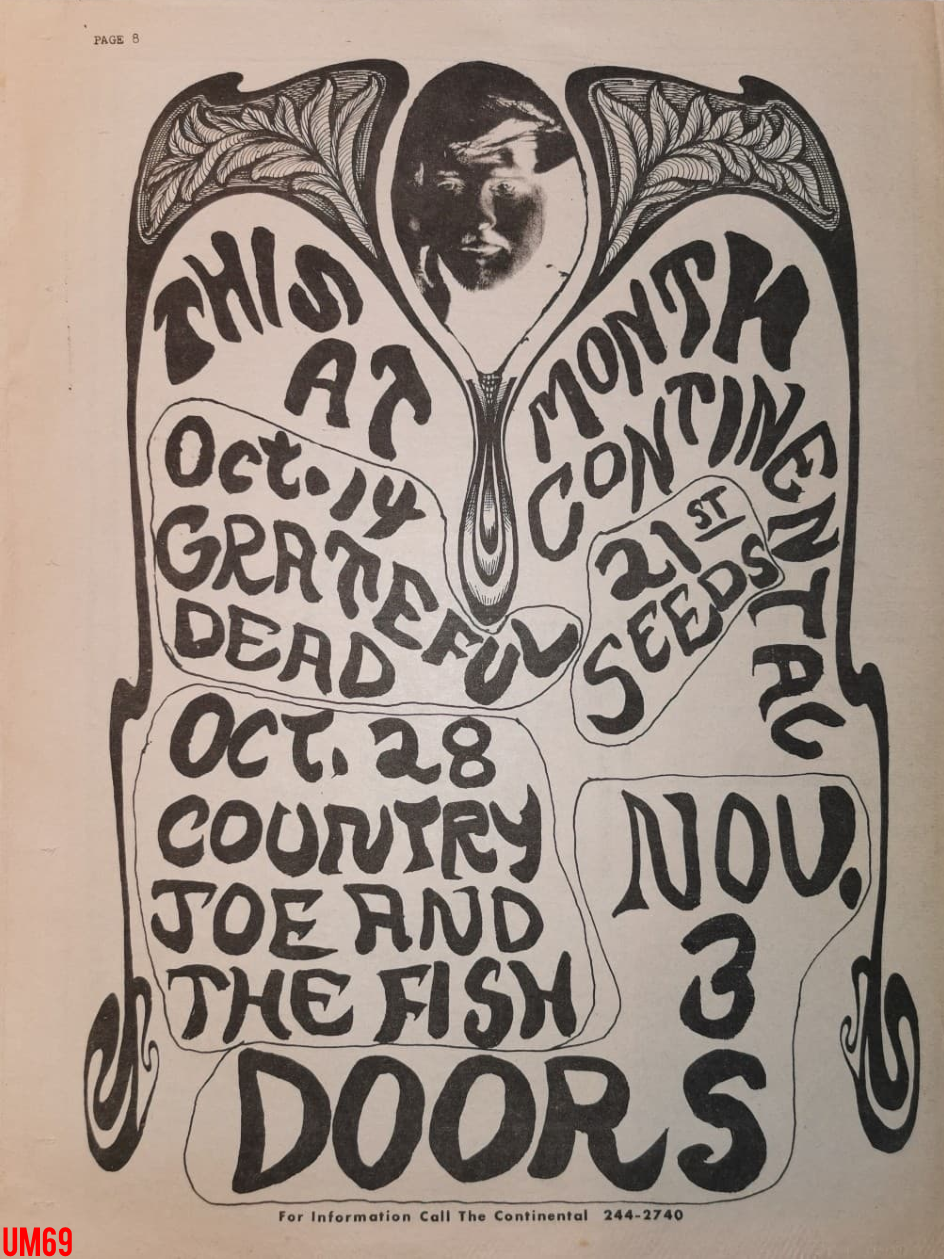 PAGE 8
THIS MONTH
AT CONTINENTAL
Oct. 14
GRATEFUL
DEAD
21ST
SEEDS
OCT. 28
COUNTRY
JOE AND
THE FISH
NOV.
3
DOORS
For Information Call The Continental 244-2740
UM69